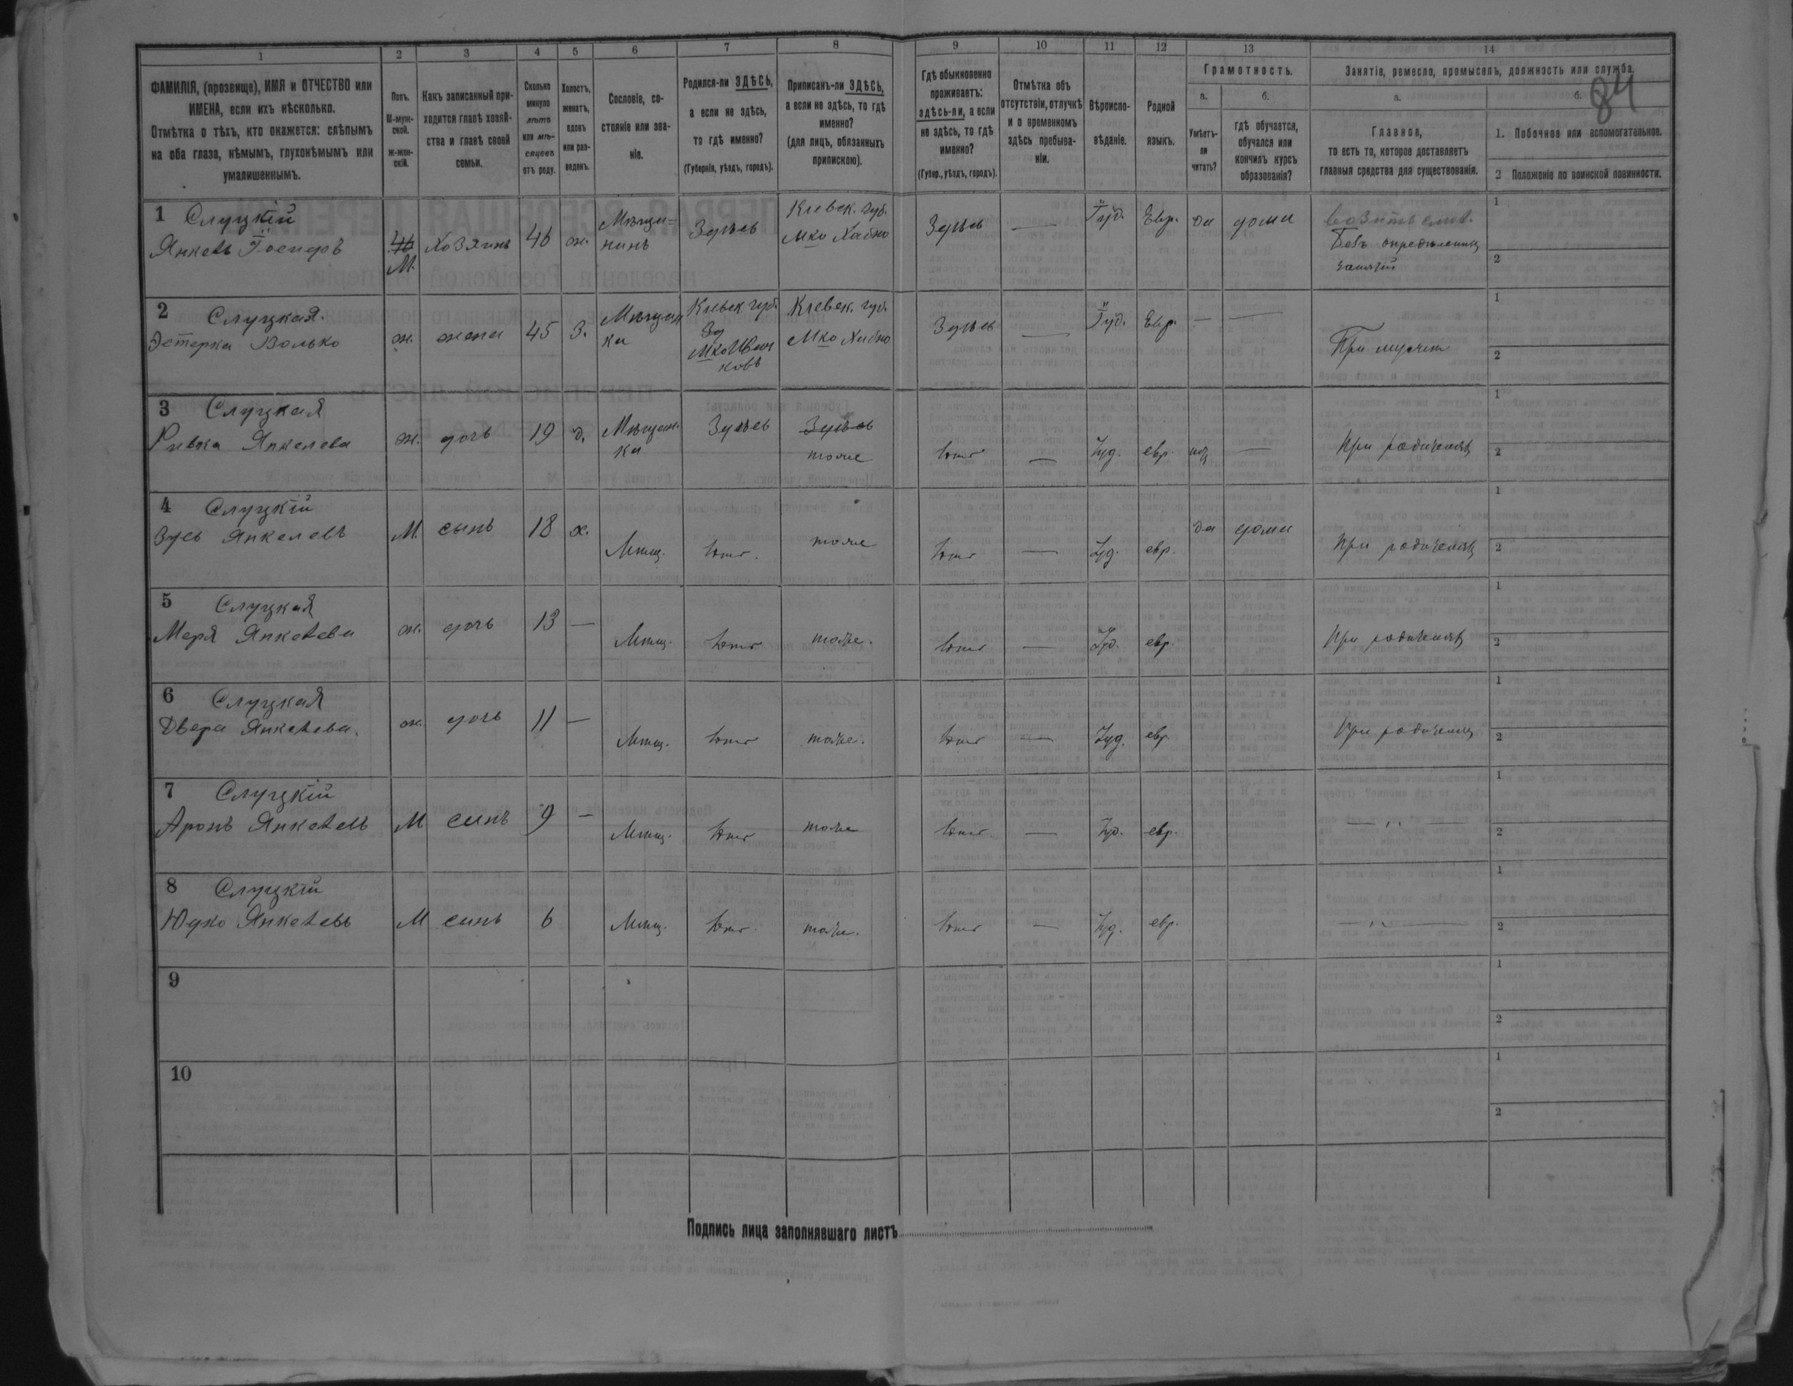 1 2 3 4 5 6 7 8 9 10 11 12 13 14
ФАМИЛІЯ, (прозвище), ИМЯ и ОТЧЕСТВО или
ИМЕНА, если ихъ нѣсколько.
Отмѣтка о тѣхъ, кто окажется: слѣпымъ
на оба глаза, нѣмымъ, глухонѣмымъ или
умалишеннымъ.
Полъ.
М-муж-
ской.
ж-жен-
скій.
Какъ записанный при-
ходится главѣ хозяй-
ства и главѣ своей
семьи.
Сколько
минуло
лѣтъ
или мѣ-
сяцевъ
отъ роду.
Холостъ,
женатъ,
вдовъ
или раз-
веденъ.
Сословіе, со-
стояніе или зва-
ніе.
Родился-ли ЗДѢСЬ,
а если не здѣсь,
то гдѣ именно?
(Губернія, уѣздъ, городъ).
Приписанъ-ли ЗДѢСЬ,
а если не здѣсь, то гдѣ
именно?
(для лицъ, обязанныхъ
припискою).
Гдѣ обыкновенно
проживаетъ:
здѣсь-ли, а если
не здѣсь, то гдѣ
именно?
(Губер., уѣздъ, городъ).
Отмѣтка объ
отсутствіи, отлучкѣ
и о временномъ
здѣсь пребыва-
ніи.
Вѣроиспо-
вѣданіе.
Родной
языкъ.
Грамотность.
а.
Умѣетъ-
ли
читать?
б.
гдѣ обучается,
обучался или
кончилъ курсъ
образованія?
Занятіе, ремесло, промыселъ, должность или служба.
84
а.
Главное,
то есть то, которое доставляетъ
главныя средства для существованія.
б.
1. Побочное или вспомогательное.
2 Положеніе по воинской повинности.
1 Слуцкій
Янкель Іосифовъ
М. хозяинъ 46 ж. Мѣща-
нинъ
Здѣсь
Кіевск. губ.
Мко Хабно
Здѣсь — Іуд. Евр. да дома
Безъ определенныхъ
занятій
1
2
2 Слуцкая.
Эстерка Волько
ж. жена 45 З. Мѣщан
ка
Кіевск губ.
Мко Иван
ковъ
Кіевск. губ.
Мко Хабно
Здѣсь — Іуд. Евр. — —
При мужѣ
1
2
3 Слуцкая
Ривка Янкелева
ж. дочь 19 д. Мѣщан-
ка
Здѣсь
Здѣсь
тоже
— Іуд. евр. —
При родителяхъ
1
2
4 Слуцкій
Зусь Янкелевъ
М. сынъ 18 х. Мѣщ. тоже — Іуд. евр. да дома
При родителяхъ
1
2
5 Слуцкая
Меря Янкелева
ж. дочь 13 — Мѣщ. тоже. — Іуд. евр.
При родителяхъ
1
2
6 Слуцкая
Двера Янкелева.
ж. дочь 11 — Мѣщ. тоже. — Іуд. евр.
При родителяхъ
1
2
7 Слуцкій
Аронъ Янкелевъ
М сынъ 9 — Мѣщ. тоже — Іуд. евр.
— „ —
1
2
8 Слуцкій
Юдко Янкелевъ
М сынъ 6 Мѣщ. тоже. — Іуд. евр.
— „ —
1
2
9
1
2
10
1
2
Подпись лица заполнявшаго листъ